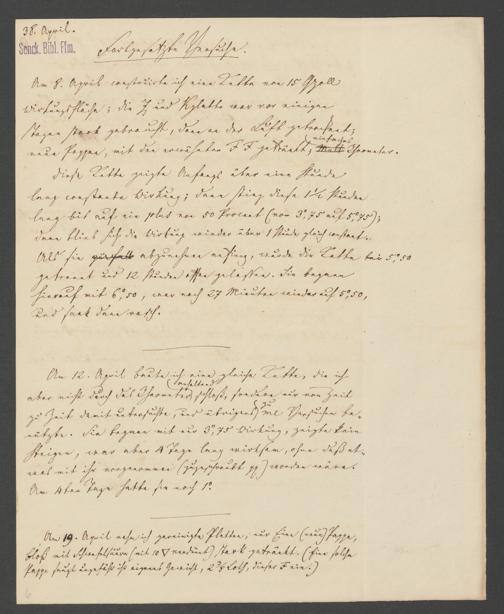 38. April.
Senck. Bibl. Ffm.
Fortgesetzte Versuche.
Am 8. April construirte ich eine Kette von 15 Zoll
Wirkungsfläche; die Z und Kplatte war vor einigen
Tagen stark gebraucht, dann an der Luft getrocknet;
neue Pappe, mit der normalen F F getränkt; einfaches Thermometer.
Diese Kette zeigte Anfangs über eine Stunde
lang constante Wirkung; dann stieg diese 1½ Stunden
lang bis auf ein plus von 50 Procent (von 3°,75 auf 5°,75);
dann blieb sich die Wirkung wieder über 1 Stunde gleich constant.
Als sie abzunehmen anfing, wurde die Kette bei 5°,50
getrennt und 12 Stunden offen gelassen. Sie begann
hierauf mit 6°,50, war nach 27 Minuten wieder auf 5°,50,
und sank dann rasch.
Am 12. April baute ich eine gleiche Kette, die ich
aber nicht durch das Thermometer schloß, sondern nur von Zeit
zu Zeit damit untersuchte, und übrigens zu Versuchen be-
nutzte. Sie begann mit nur 3°,75 Wirkung, zeigte kein
Steigen, war aber 4 Tage lang wirksam, ohne daß et-
was mit ihr vorgenommen (zugeschraubt pp) worden wäre.
Am 4ten Tage hatte sie noch 1°.
Am 19. April nahm ich gereinigte Platten, nur Eine (neue) Pappe,
bloß mit Schwefelsäure (mit 10 verdünnt) stark getränkt. (Eine solche
Pappe saugt ungefähr ihr eigenes Gewicht, Loth, dieser F ein.)